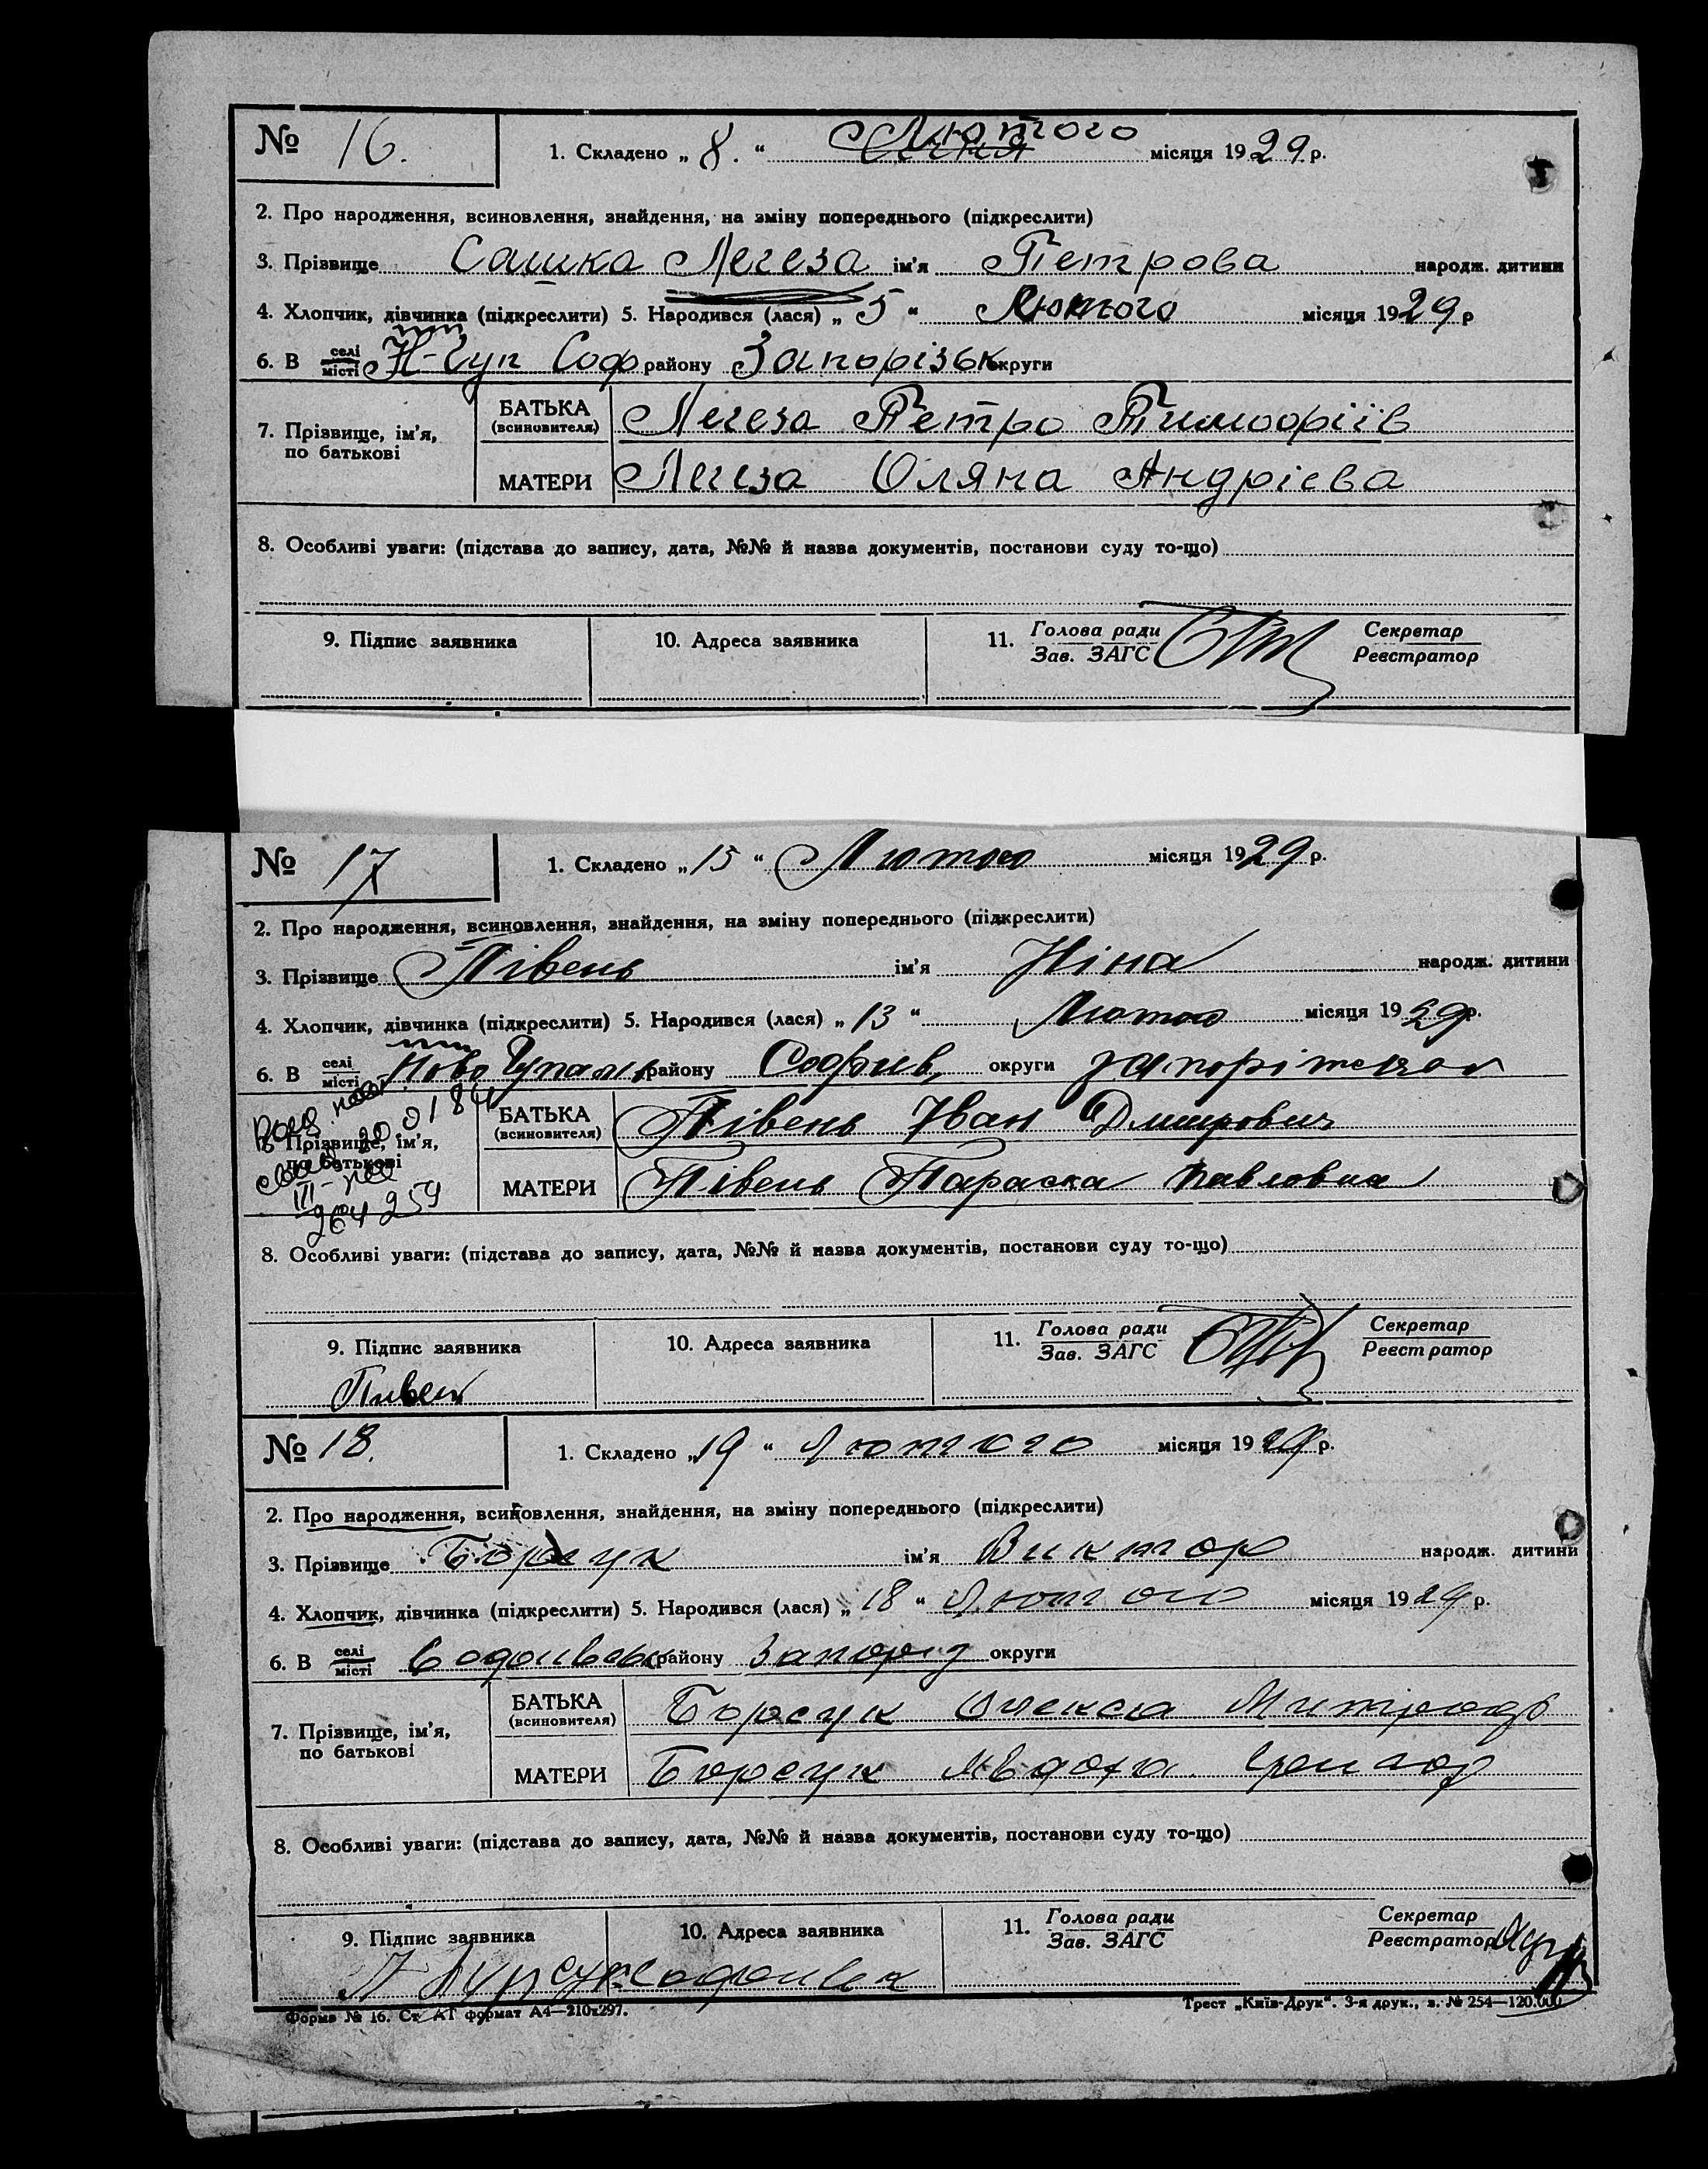 № 16. 1. Складено „ 8. “ Лютого місяця 1929 р.
2. Про народження, всиновлення, знайдення, на зміну попереднього (підкреслити)
3. Прізвище Сашка Легеза ім'я Петрова народж. дитини
4. Хлопчик, дівчинка (підкреслити) 5. Народився (лася) „ 5 “ Лютого місяця 1929 р
6. В селі/місті Н-Чуп Соф району Запорізьк округи
7. Прізвище, ім'я, по батькові
БАТЬКА (всиновителя) Легеза Петро Тимофіїв
МАТЕРИ Легеза Оляна Андрієва
8. Особливі уваги: (підстава до запису, дата, №№ й назва документів, постанови суду то-що)
9. Підпис заявника 10. Адреса заявника 11. Голова ради/Зав. ЗАГС Секретар/Реєстратор
№ 17 1. Складено „ 15 “ Лютого місяця 1929 р.
2. Про народження, всиновлення, знайдення, на зміну попереднього (підкреслити)
3. Прізвище Півень ім'я Ніна народж. дитини
4. Хлопчик, дівчинка (підкреслити) 5. Народився (лася) „ 13 “ Лютого місяця 1929 р.
6. В селі/місті Ново Чупаль району Софиев, округи
7. Прізвище, ім'я, по батькові
III
264259
БАТЬКА (всиновителя) Півень Іван Дмитрович
МАТЕРИ Півень Параска Павловна
8. Особливі уваги: (підстава до запису, дата, №№ й назва документів, постанови суду то-що)
9. Підпис заявника 10. Адреса заявника 11. Голова ради/Зав. ЗАГС Секретар/Реєстратор
Пивен
№ 18. 1. Складено „19 “ Лютого місяця 1929 р.
2. Про народження, всиновлення, знайдення, на зміну попереднього (підкреслити)
3. Прізвище Борсук ім'я Виктор народж. дитини
4. Хлопчик, дівчинка (підкреслити) 5. Народився (лася) „ 18 “ Лютого місяця 1929 р.
6. В селі/місті району Запоріз округи
7. Прізвище, ім'я, по батькові
БАТЬКА (всиновителя) Борсук Олекса Митроф
МАТЕРИ Борсук Явдоха
8. Особливі уваги: (підстава до запису, дата, №№ й назва документів, постанови суду то-що)
9. Підпис заявника 10. Адреса заявника 11. Голова ради/Зав. ЗАГС Секретар/Реєстратор
Форма № 16. Ст. АТ формат А4—210х297. Трест „Київ-Друк“. 3-я друк., з. № 254—120.000